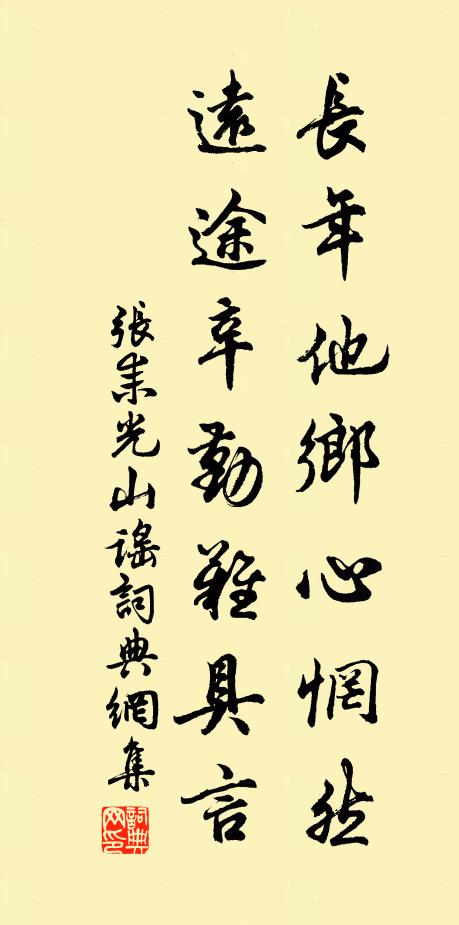 長年他鄉心惘然
遠途辛勤難具言
張耒光山謠詞典網集
詞典网印